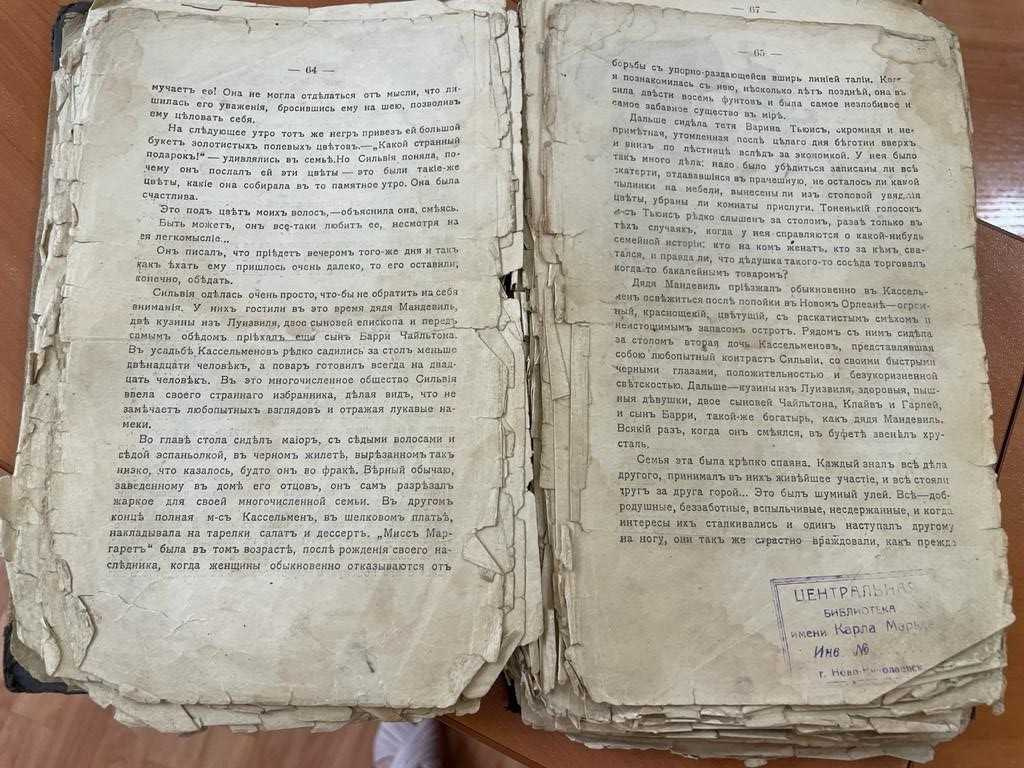 — 64 —
мучаетъ ее! Она не могла отдѣлаться отъ мысли, что ли-
шилась его уваженія, бросившись ему на шею, позволивъ
ему цѣловать себя.
На слѣдующее утро тотъ же негръ привезъ ей большой
букетъ золотистыхъ полевыхъ цвѣтовъ.—„Какой странный
подарокъ!“—удивлялись въ семьѣ. Но Сильвія поняла, по-
чему онъ послалъ ей эти цвѣты—это были такіе-же
цвѣты, какіе она собирала въ то памятное утро. Она была
счастлива.
Это подъ цвѣтъ моихъ волосъ,—объяснила она, смѣясь.
Быть можетъ, онъ все-таки любитъ ее, несмотря на
ея легкомысліе...
Онъ писалъ, что пріѣдетъ вечеромъ того-же дня и такъ
какъ ѣхать ему пришлось очень далеко, то его оставили,
конечно, обѣдать.
Сильвія одѣлась очень просто, что-бы не обратить на себя
вниманія. У нихъ гостили въ это время дядя Мандевиль,
двѣ кузины изъ Луизвиля, двое сыновей епископа и передъ
самымъ обѣдомъ пріѣхалъ еще сынъ Барри Чайльтона.
Въ усадьбѣ Кассельменовъ рѣдко садились за столъ меньше
двѣнадцати человѣкъ, а поваръ готовилъ всегда на двад-
цать человѣкъ. Въ это многочисленное общество Сильвія
ввела своего страннаго избранника, дѣлая видъ, что не
замѣчаетъ любопытныхъ взглядовъ и отражая лукавые на-
меки.
Во главѣ стола сидѣлъ маіоръ, съ сѣдыми волосами и
сѣдой эспаньолкой, въ черномъ жилетѣ, вырѣзанномъ такъ
низко, что казалось, будто онъ во фракѣ. Вѣрный обычаю,
заведенному въ домѣ его отцовъ, онъ самъ разрѣзалъ
жаркое для своей многочисленной семьи. Въ другомъ
концѣ полная м-съ Кассельменъ, въ шелковомъ платьѣ,
накладывала на тарелки салатъ и дессертъ. „Миссъ Мар-
гаретъ“ была въ томъ возрастѣ, послѣ рожденія своего на-
слѣдника, когда женщины обыкновенно отказываются отъ
— 67 —
— 65 —
борьбы съ упорно-раздающейся вширь линіей таліи. Ког
я познакомилась съ нею, нѣсколько лѣтъ позднѣй, она въ
сила двѣсти восемь фунтовъ и была самое незлобивое и
самое забавное существо въ мірѣ.
Дальше сидѣла тетя Варина Тьюисъ, скромная и не-
примѣтная, утомленная послѣ цѣлаго дня бѣготни вверхъ
и внизъ по лѣстницѣ вслѣдъ за экономкой. У нея было
такъ много дѣла; надо было убѣдиться записаны ли всѣ
скатерти, отдававшіяся въ прачешную, не осталось ли какой
пылинки на мебели, вынесены ли изъ столовой увядшіе
цвѣты, убраны ли комнаты прислуги. Тоненькій голосокъ
м-съ Тьюисъ рѣдко слышенъ за столомъ, развѣ только въ
тѣхъ случаяхъ, когда у нея справляются о какой-нибудь
семейной исторіи: кто на комъ женатъ, кто за кѣмъ сва-
тался, и правда ли, что дѣдушка такого-то сосѣда торговалъ
когда-то бакалейнымъ товаромъ?
Дядя Мандевиль пріѣзжалъ обыкновенно въ Кассель-
менъ освѣжиться послѣ попойки въ Новомъ Орлеанѣ—огром-
ный, краснощекій, цвѣтущій, съ раскатистымъ смѣхомъ и
неистощимымъ запасомъ остротъ. Рядомъ съ нимъ сидѣла
за столомъ вторая дочь Кассельменовъ, представлявшая
собою любопытный контрастъ Сильвіи, со своими быстрыми
черными глазами, положительностью и безукоризненной
свѣтскостью. Дальше—кузины изъ Луизвиля, здоровыя, пыш-
ныя дѣвушки, двое сыновей Чайльтона, Клайвъ и Гарлей,
и сынъ Барри, такой-же богатырь, какъ дядя Мандевиль.
Всякій разъ, когда онъ смѣялся, въ буфетѣ звенѣлъ хру-
сталь.
Семья эта была крѣпко спаяна. Каждый зналъ всѣ дѣла
другого, принималъ въ нихъ живѣйшее участіе, и всѣ стояли
другъ за друга горой... Это былъ шумный улей. Всѣ—доб-
родушные, беззаботные, вспыльчивые, несдержанные, и когда
интересы ихъ сталкивались и одинъ наступалъ другому
на ногу, они такъ же страстно враждовали, какъ прежде
ЦЕНТРАЛЬНАЯ
БИБЛИОТЕКА
имени Карла Маркса
Инв. №
г. Ново-Николаевск